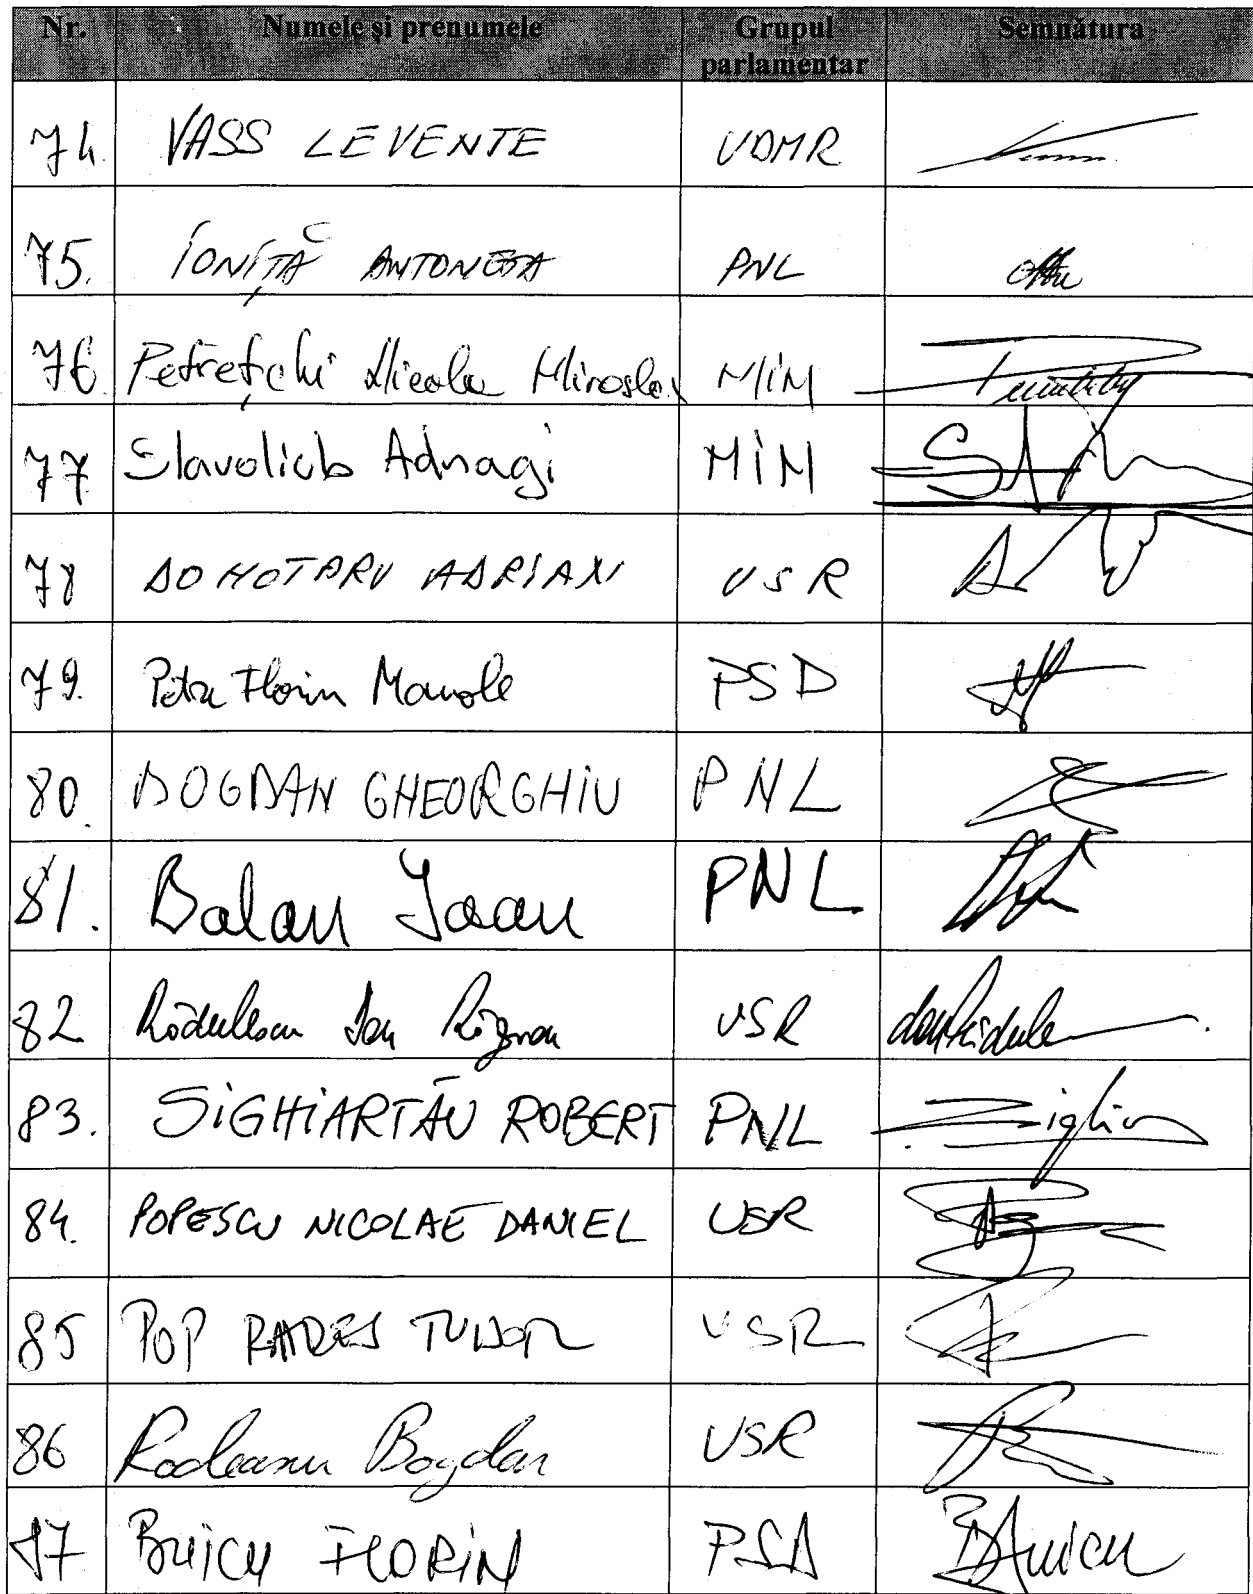 Nr. Numele și prenumele Grupul parlamentar Semnătura
74. VASS LEVENTE UDMR
75. IONIȚĂ ANTONETA PNL
76 Petrețchi Nicolae Miroslav MIN
77 Slavoliub Adnagi MIN
78 DOHOTARU ADRIAN USR
79. Petre Florin Manole PSD
80. BOGDAN GHEORGHIU PNL
81. Balan Ioan PNL
82 Rădulescu Dan Răzvan USR
83. SIGHIARTĂU ROBERT PNL
84. POPESCU NICOLAE DANIEL USR
85 POP RAREȘ TUDOR USR
86 Rodeanu Bogdan USR
87 Buicu FLORIN PSD